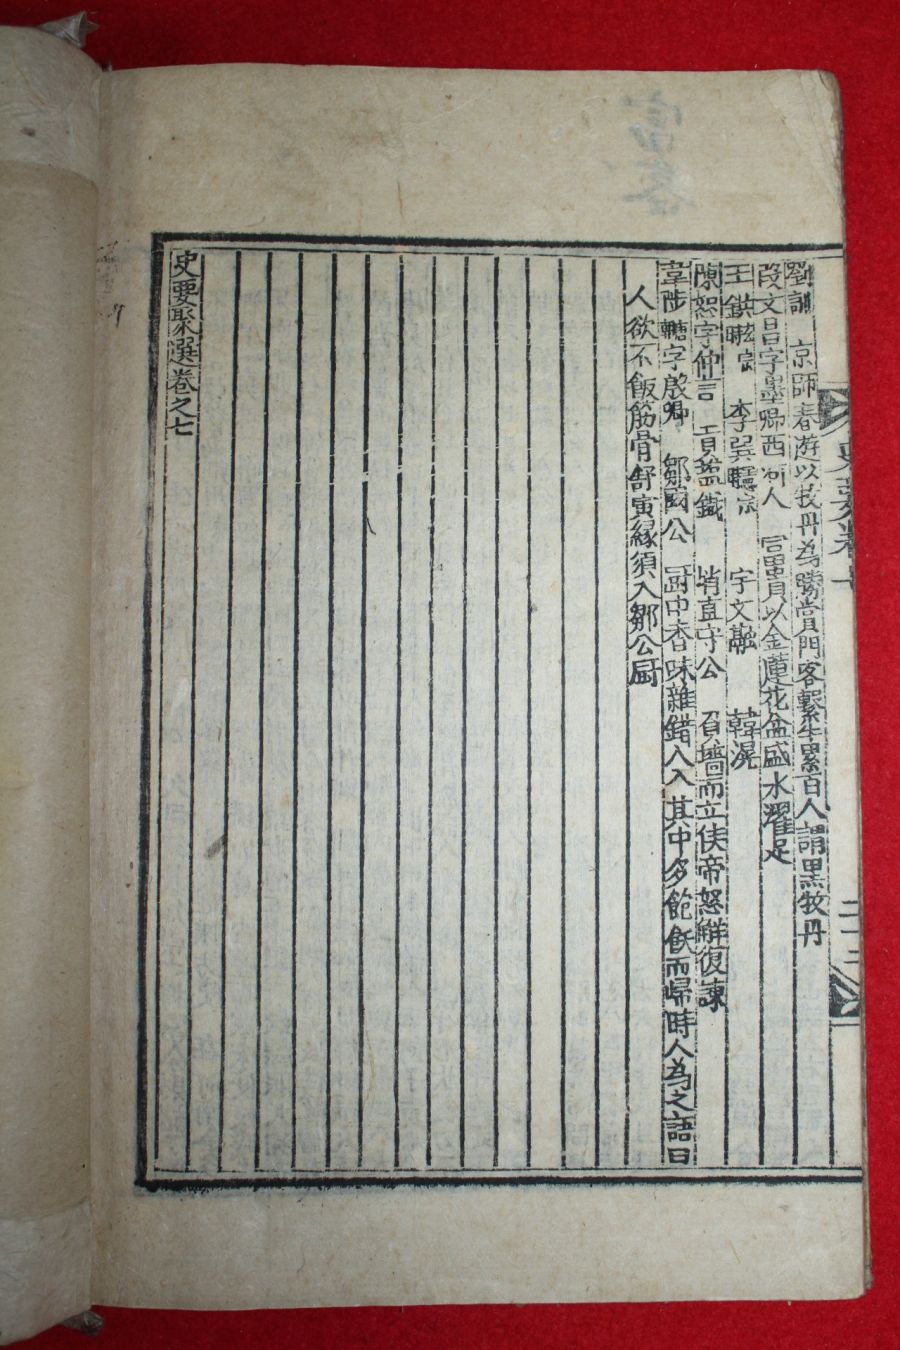 劉訓 京師春遊以牧丹為勝賞門客繫牛累百人謂黑牧丹
段文昌字墨卿西河人 富貴以金蓮花盆盛水濯足
王鉷 李巽 宇文融 韓滉
陳恕字仲言 真塩鐵 峭直守公 負墻而立俟帝怒觧復諫
韋陟 字殷卿 鄒國公 厨中香味雜錯人入其中多飽飫而歸時人為之語曰
人欲不飯筋骨舒寅緣須入鄒公厨
史要聚選卷之七
史要卷七
二十三